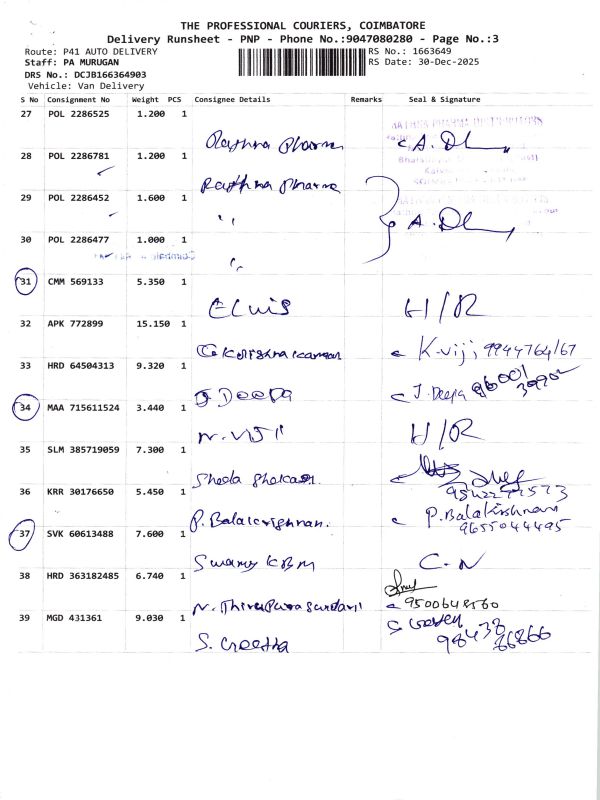 THE PROFESSIONAL COURIERS, COIMBATORE
Delivery Runsheet - PNP - Phone No.:9047080280 - Page No.:3
Route: P41 AUTO DELIVERY
RS No.: 1663649
Staff: PA MURUGAN
RS Date: 30-Dec-2025
DRS No.: DCJB166364903
Vehicle: Van Delivery
S No Consignment No Weight PCS Consignee Details Remarks Seal & Signature
27 POL 2286525 1.200 1
Pharma
28 POL 2286781 1.200 1
Pharma
29 POL 2286452 1.600 1
"
30 POL 2286477 1.000 1
"
31 CMM 569133 5.350 1
H/R
32 APK 772899 15.150 1
K.viji 9944764167
33 HRD 64504313 9.320 1
J Deepa J. Deepa
34 MAA 715611524 3.440 1
N. Viji H/R
35 SLM 385719059 7.300 1
36 KRR 30176650 5.450 1
P. Balakrishnan. P. Balakrishnan
9655044495
37 SVK 60613488 7.600 1
Swamy KBM C.N
38 HRD 363182485 6.740 1
N. Thirupurasundari 9500648560
39 MGD 431361 9.030 1
S. Geetha
98438